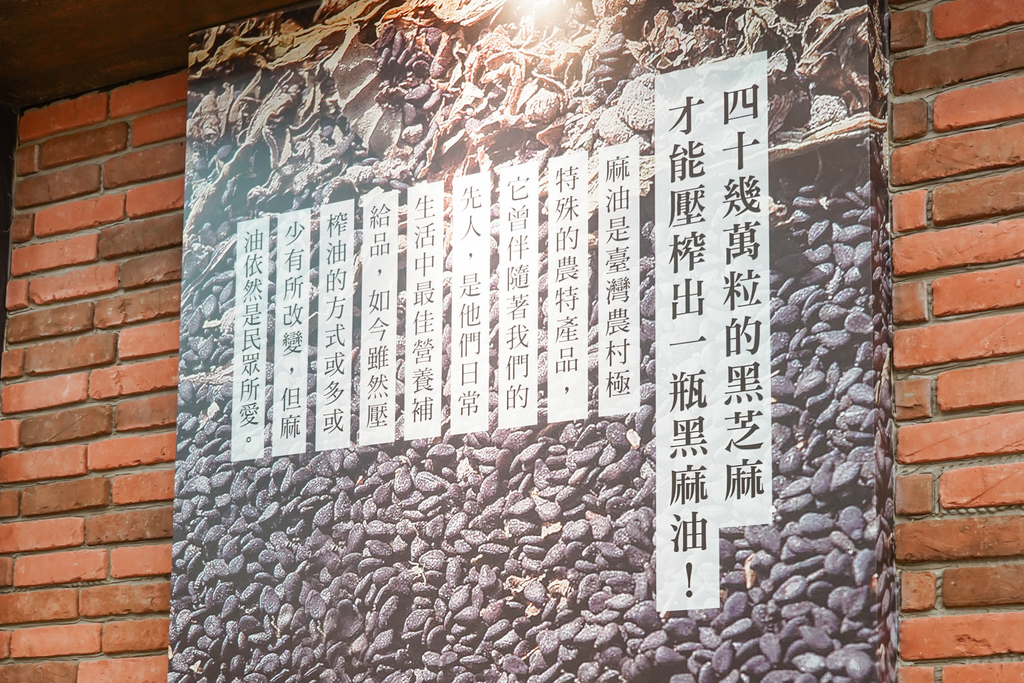 四十幾萬粒的黑芝麻
才能壓榨出一瓶黑麻油！
麻油是臺灣農村極
特殊的農特產品，
它曾伴隨著我們的
先人，是他們日常
生活中最佳營養補
給品，如今雖然壓
榨油的方式或多或
少有所改變，但麻
油依然是民眾所愛。